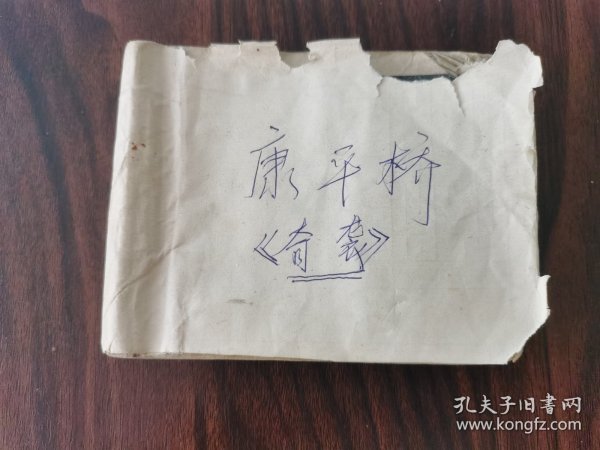 康平桥
《奇袭》
孔夫子旧書网
www.kongfz.com